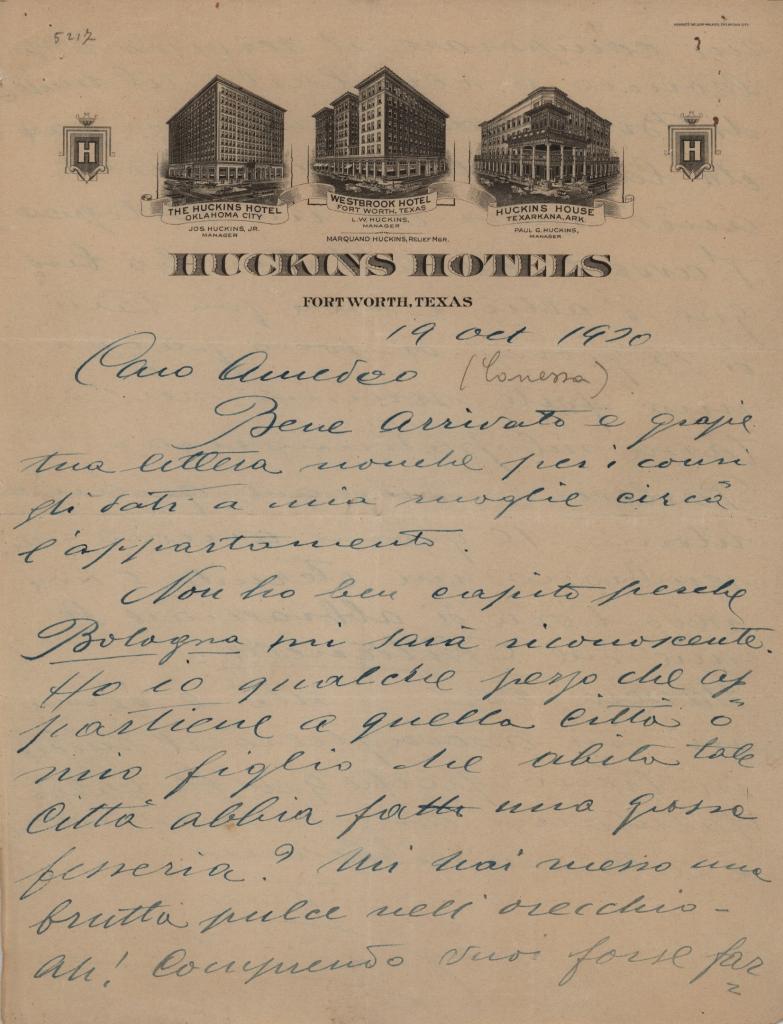 5217
H
H
THE HUCKINS HOTEL
OKLAHOMA CITY
JOS. HUCKINS, JR.
MANAGER
WESTBROOK HOTEL
FORT WORTH, TEXAS
L.W. HUCKINS,
MANAGER
MARQUAND HUCKINS, RELIEF MGR.
HUCKINS HOUSE
TEXARKANA, ARK.
PAUL G. HUCKINS,
MANAGER
HUCKINS HOTELS
FORT WORTH, TEXAS
19 Oct 1920
Caro Amedeo
Bene Arrivato e grazie
tua lettera nonche per i consi
gli dati a mia moglie circa
l'appartamento.
Non ho ben capito perche
Bologna mi sarà riconoscente.
Ho io qualche pezzo che ap
partiene a quella Città o
mio figlio che abita tale
Città abbia fatto una grossa
fesseria? Mi hai messo una
brutta pulce nell orecchio -
Ah! Comprendo vuoi forse far